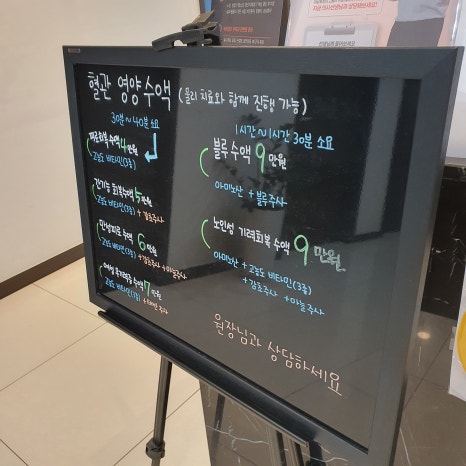 혈관 영양수액 (물리 치료와 함께 진행 가능)
30분~40분 소요
피로회복 수액 4만원
고농도 비타민(3종)
간기능 회복수액 5만원
고농도 비타민(3종) + 감초주사
만성피로 수액 6만원
고농도 비타민(3종) + 감초주사 + 마늘주사
수액 7만원
고농도 비타민(3종) + 주사
1시간~1시간 30분 소요
블루 수액 9만원
아미노산 + 블루주사
노인성 기력회복 수액 9만원
아미노산 + 고농도 비타민(3종)
+ 감초주사 + 마늘주사
원장님과 상담하세요